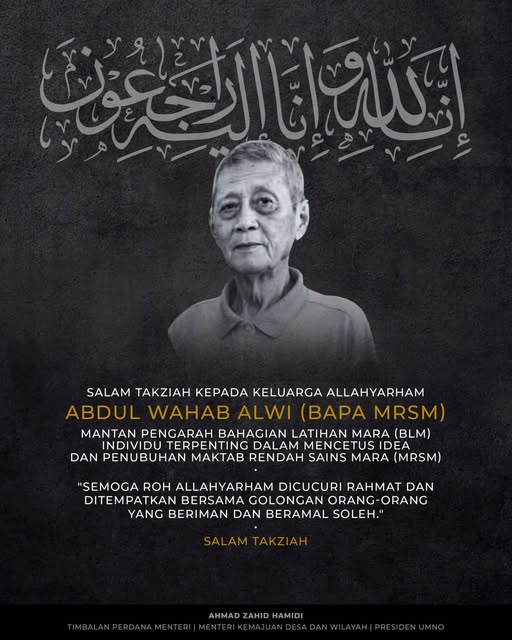 إنا لله وإنا إليه راجعون
SALAM TAKZIAH KEPADA KELUARGA ALLAHYARHAM
ABDUL WAHAB ALWI (BAPA MRSM)
MANTAN PENGARAH BAHAGIAN LATIHAN MARA (BLM)
INDIVIDU TERPENTING DALAM MENCETUS IDEA
DAN PENUBUHAN MAKTAB RENDAH SAINS MARA (MRSM)
"SEMOGA ROH ALLAHYARHAM DICUCURI RAHMAT DAN
DITEMPATKAN BERSAMA GOLONGAN ORANG-ORANG
YANG BERIMAN DAN BERAMAL SOLEH."
SALAM TAKZIAH
AHMAD ZAHID HAMIDI
TIMBALAN PERDANA MENTERI | MENTERI KEMAJUAN DESA DAN WILAYAH | PRESIDEN UMNO